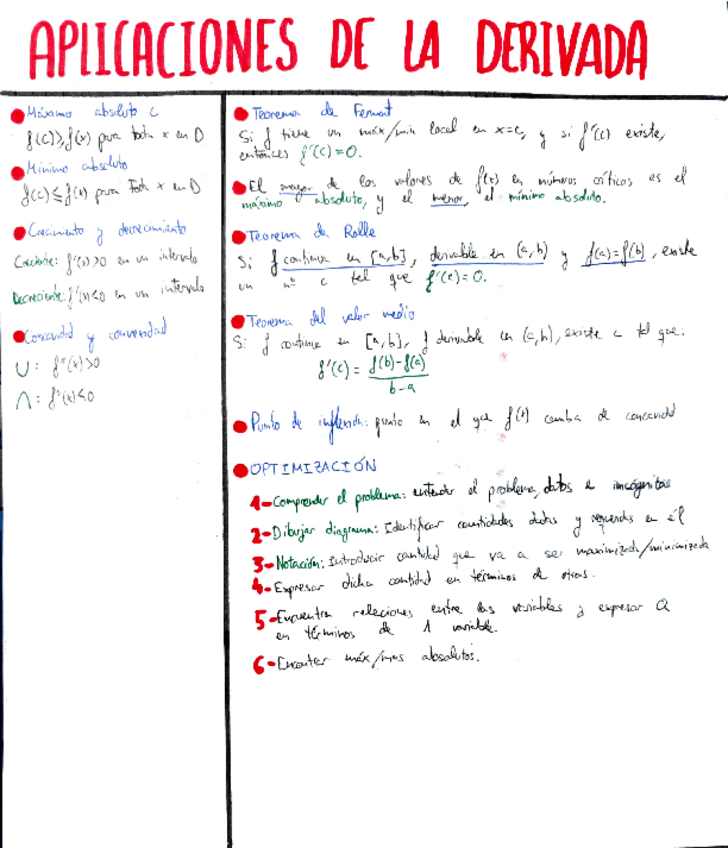 APLICACIONES DE LA DERIVADA
Máximo absoluto c
f(c)≥f(x) para todo x en D
Mínimo absoluto
f(c)≤f(x) para todo x en D
Crecimiento y decrecimiento
Creciente: f'(x)>0 en un intervalo
Decreciente: f'(x)<0 en un intervalo
Concavidad y convexidad
∪: f''(x)>0
∩: f''(x)<0
Teorema de Fermat
Si f tiene un máx/mín local en x=c, y si f'(c) existe,
entonces f'(c)=0.
El mayor de los valores de f(x) en números críticos es el
máximo absoluto, y el menor, el mínimo absoluto.
Teorema de Rolle
Si f continua en [a,b], derivable en (a,b) y f(a)=f(b), existe
un nº c tal que f'(c)=0.
Teorema del valor medio
Si f continua en [a,b], f derivable en (a,b), existe c tal que:
f'(c) = f(b)-f(a)
b-a
Punto de inflexión: punto en el que f(x) cambia de concavidad
OPTIMIZACIÓN
1-Comprender el problema: entender el problema, datos e incógnitas
2-Dibujar diagrama: Identificar cantidades dadas y requeridas en él
3-Notación: Introducir cantidad que va a ser maximizada/minimizada
4-Expresar dicha cantidad en términos de otras.
5-Encuentra relaciones entre las variables y expresar Q
en términos de 1 variable.
6-Encontrar máx/mins absolutos.